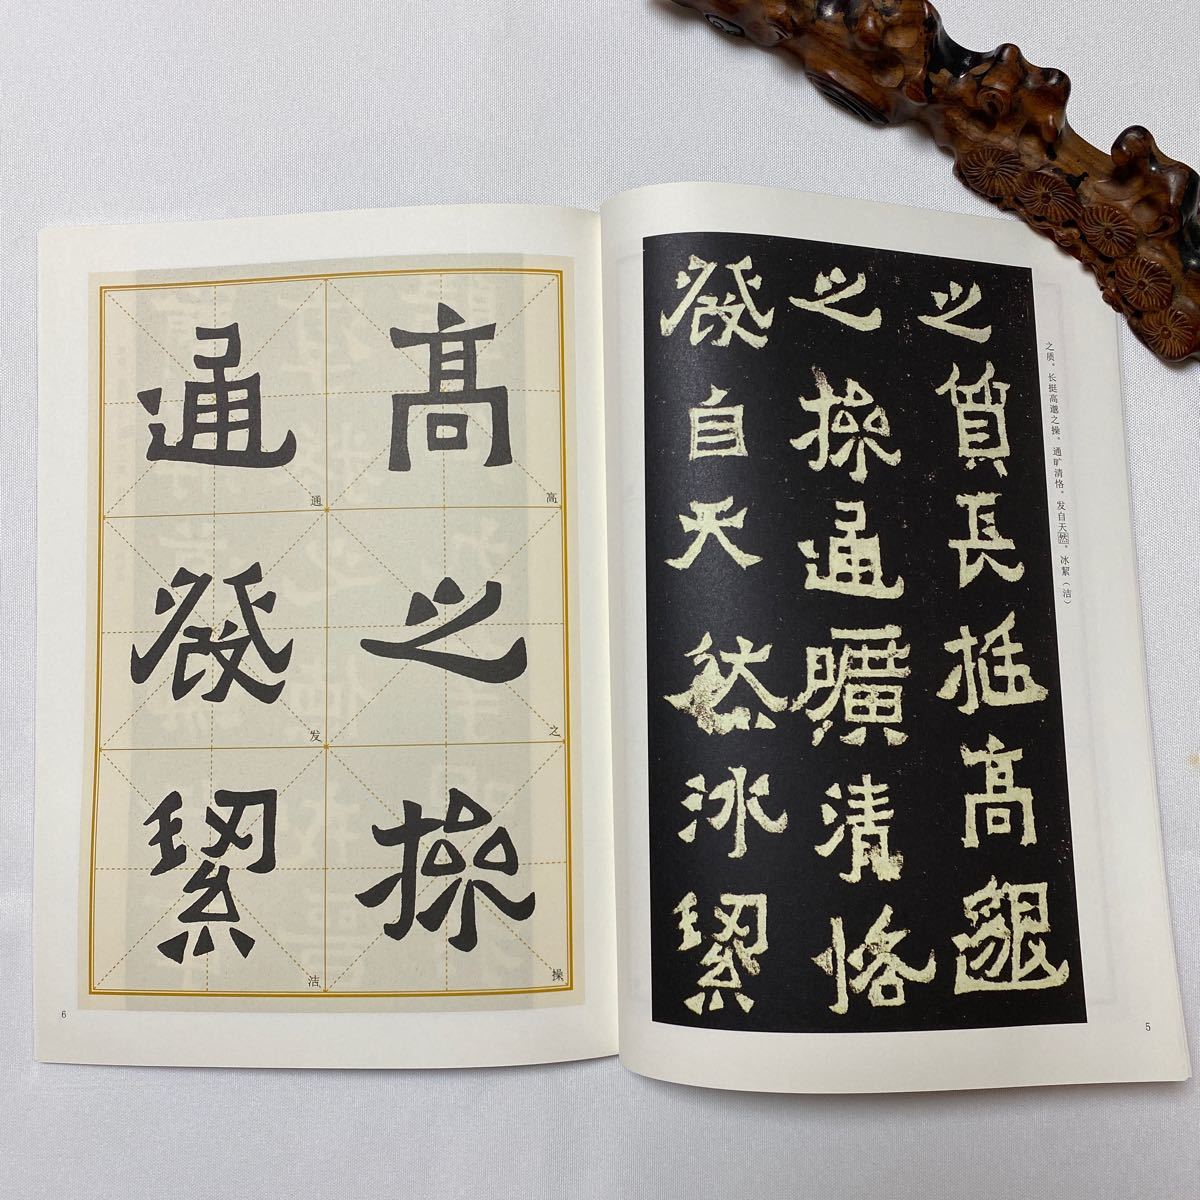 之質長挺高邈
之操通曠清恪
發自天然冰絜
之质，长挺高邈之操，通旷清恪，发自天然，冰絜（洁）
5
高之操
高
之
操
通發絜
通
发
洁
6